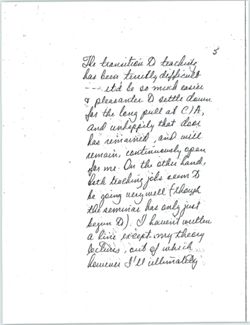 5
The transition to teaching
has been terribly difficult
--- it'd be so much easier
& pleasanter to settle down
for the long pull at CIA,
and unhappily that door
has remained, and will
remain, continuously open
for me. On the other hand,
both teaching jobs seem to
be going very well (though
the seminar has only just
begun to). I haven't written
a line except my theory
lectures, out of which
however I'll ultimately